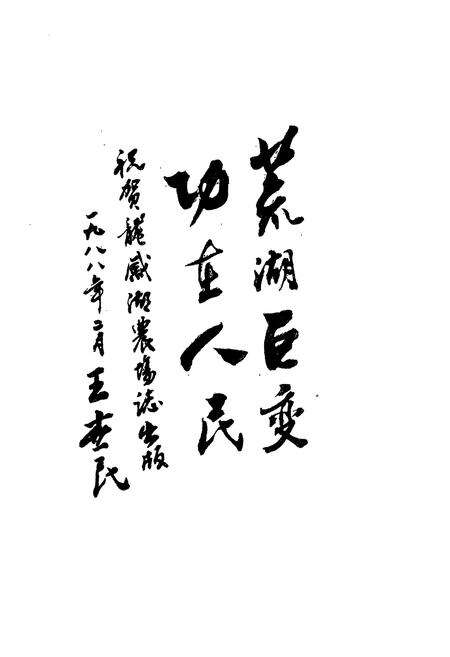 荒湖巨变
功在人民
祝贺龍感湖農場誌出版
一九八八年二月 王杰民